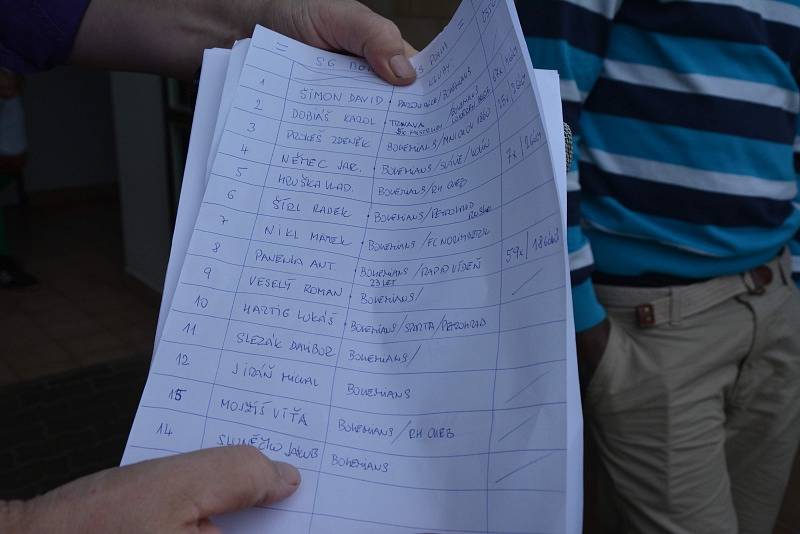 SG
1 ŠIMON DAVID BOHEMIANS
2 DOBIÁŠ KAROL TRNAVA BOHEMIANS
3 PRUKEŠ ZDENĚK BOHEMIANS/MNICHOV 1860 7x/2GÓLY
4 NĚMEC JAR. BOHEMIANS/SLÁVIE/KOLÍN
5 HRUŠKA VLAD. BOHEMIANS/RH CHEB
6 ŠÍRL RADEK BOHEMIANS/PETROHRAD
7 NIKL MAREK BOHEMIANS/FC NORIMBERK
8 PANENKA ANT. BOHEMIANS/RAPID VÍDEŇ 59x/
23 LET
9 VESELÝ ROMAN BOHEMIANS/
10 HARTIG LUKÁŠ BOHEMIANS/SPARTA/PETROHRAD
11 SLEZÁK DALIBOR BOHEMIANS/
12 JIRÁŇ MICHAL BOHEMIANS
15 MOJŽÍŠ VÍŤA BOHEMIANS/RH CHEB
14 JAKUB BOHEMIANS